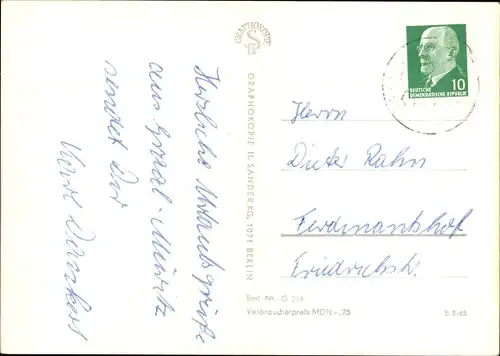 Herzliche Urlaubsgrüße
aus Graal-Müritz
sendet Dir
GRAPHOKOPIE
GRAPHOKOPIE H. SANDER KG, 1071 BERLIN
DEUTSCHE
DEMOKRATISCHE REPUBLIK
10
Herrn
Dieter Rahn
Ferdinantshof
Friedrichstr.
Best.-Nr. G 244
Verbraucherpreis MDN -,25
B 8/65